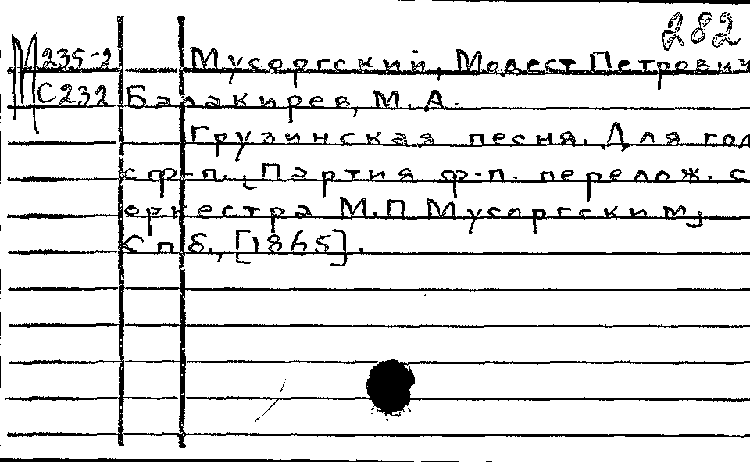 282
М 235-2 Мусоргский, Модест Петрович
С 232 Балакирев, М. А.
Грузинская песня. Для гол
с ф-п. [Партия ф-п. перелож. с
оркестра М.П Мусоргским]
Спб., [1865].